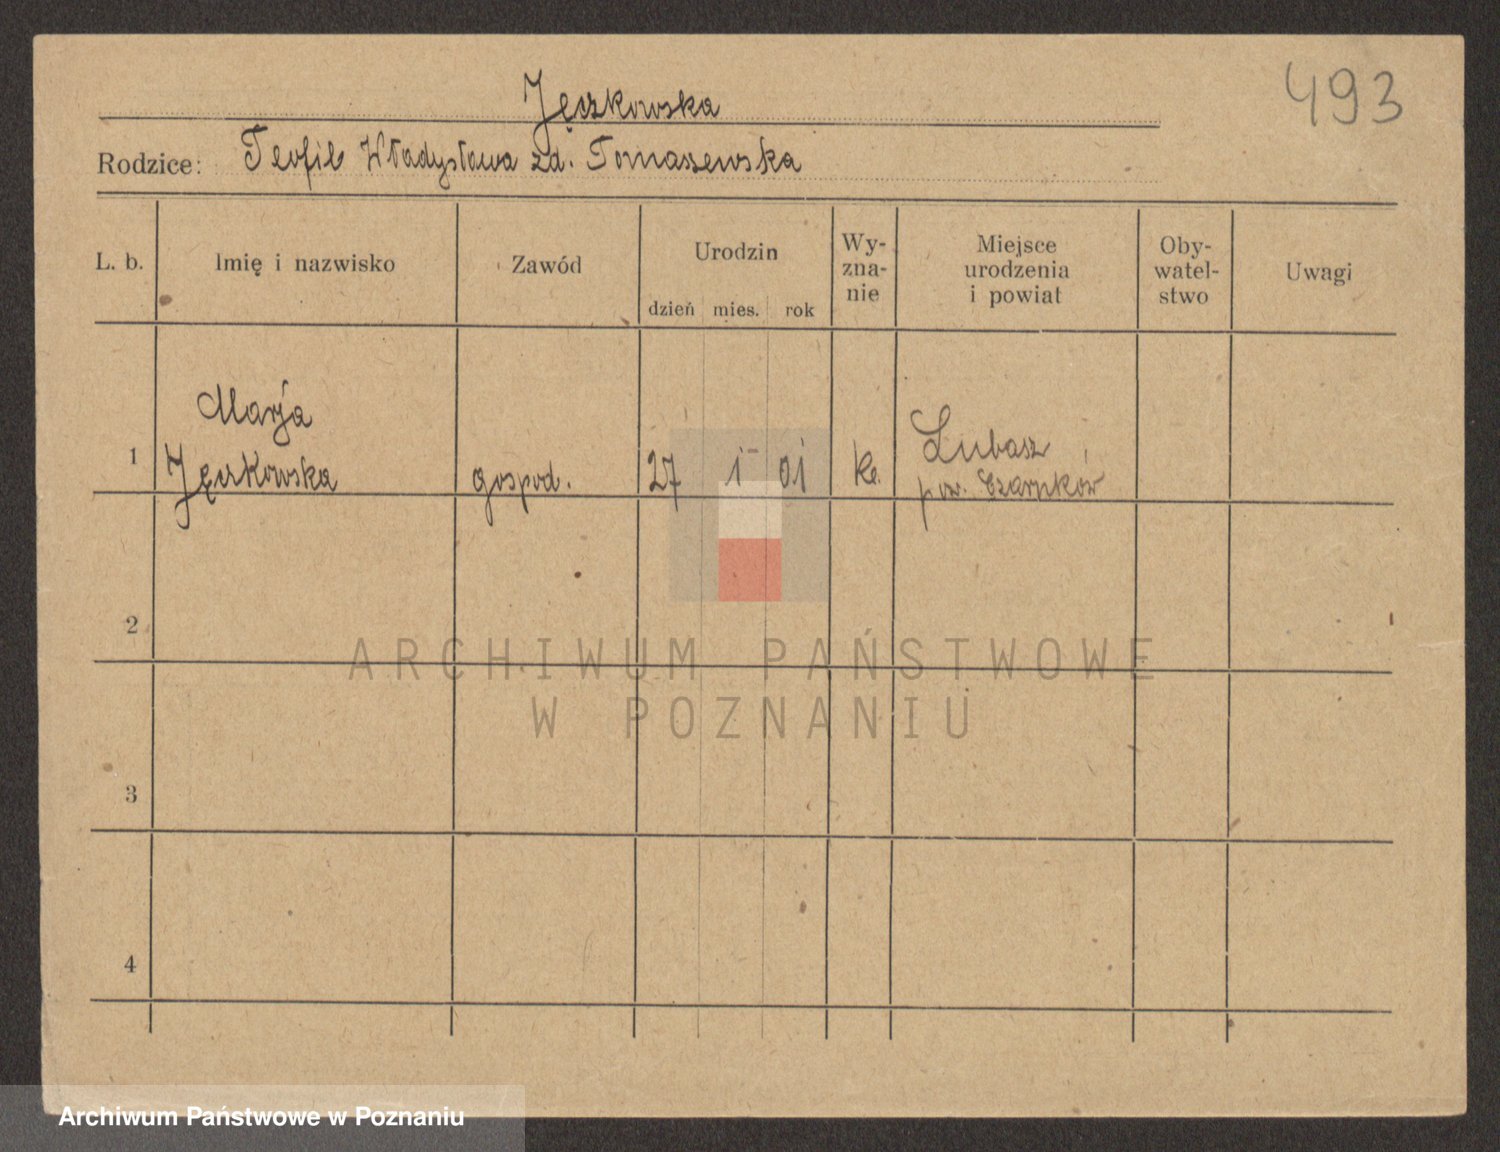 493
Jęczkowska
Rodzice: Teofil Władysława zd. Tomaszewska
L. b. Imię i nazwisko Zawód Urodzin dzień mies. rok Wy-zna-nie Miejsce urodzenia i powiat Oby-watel-stwo Uwagi
Marja
1 Jęczkowska gospod. 27 1 01 k. Lubasz
pow. Czarnków
2
ARCHIWUM PAŃSTWOWE
W POZNANIU
3
4
Archiwum Państwowe w Poznaniu